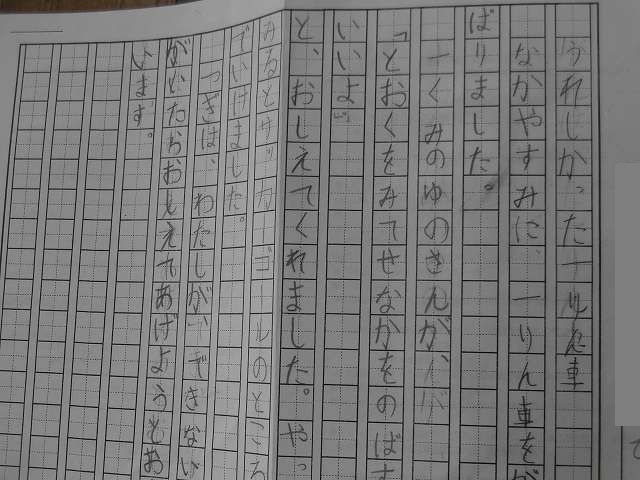 うれしかった一りん車
なかやすみに、一りん車をが
ばりました。
一くみのゆのさんが、
「とおくをみてせなかをのばす
いいよ。」
と、おしえてくれました。やっ
みるとサッカーゴールのところ
でいけました。
つぎは、わたしが、できない
がいたらおしえてあげようとお
います。